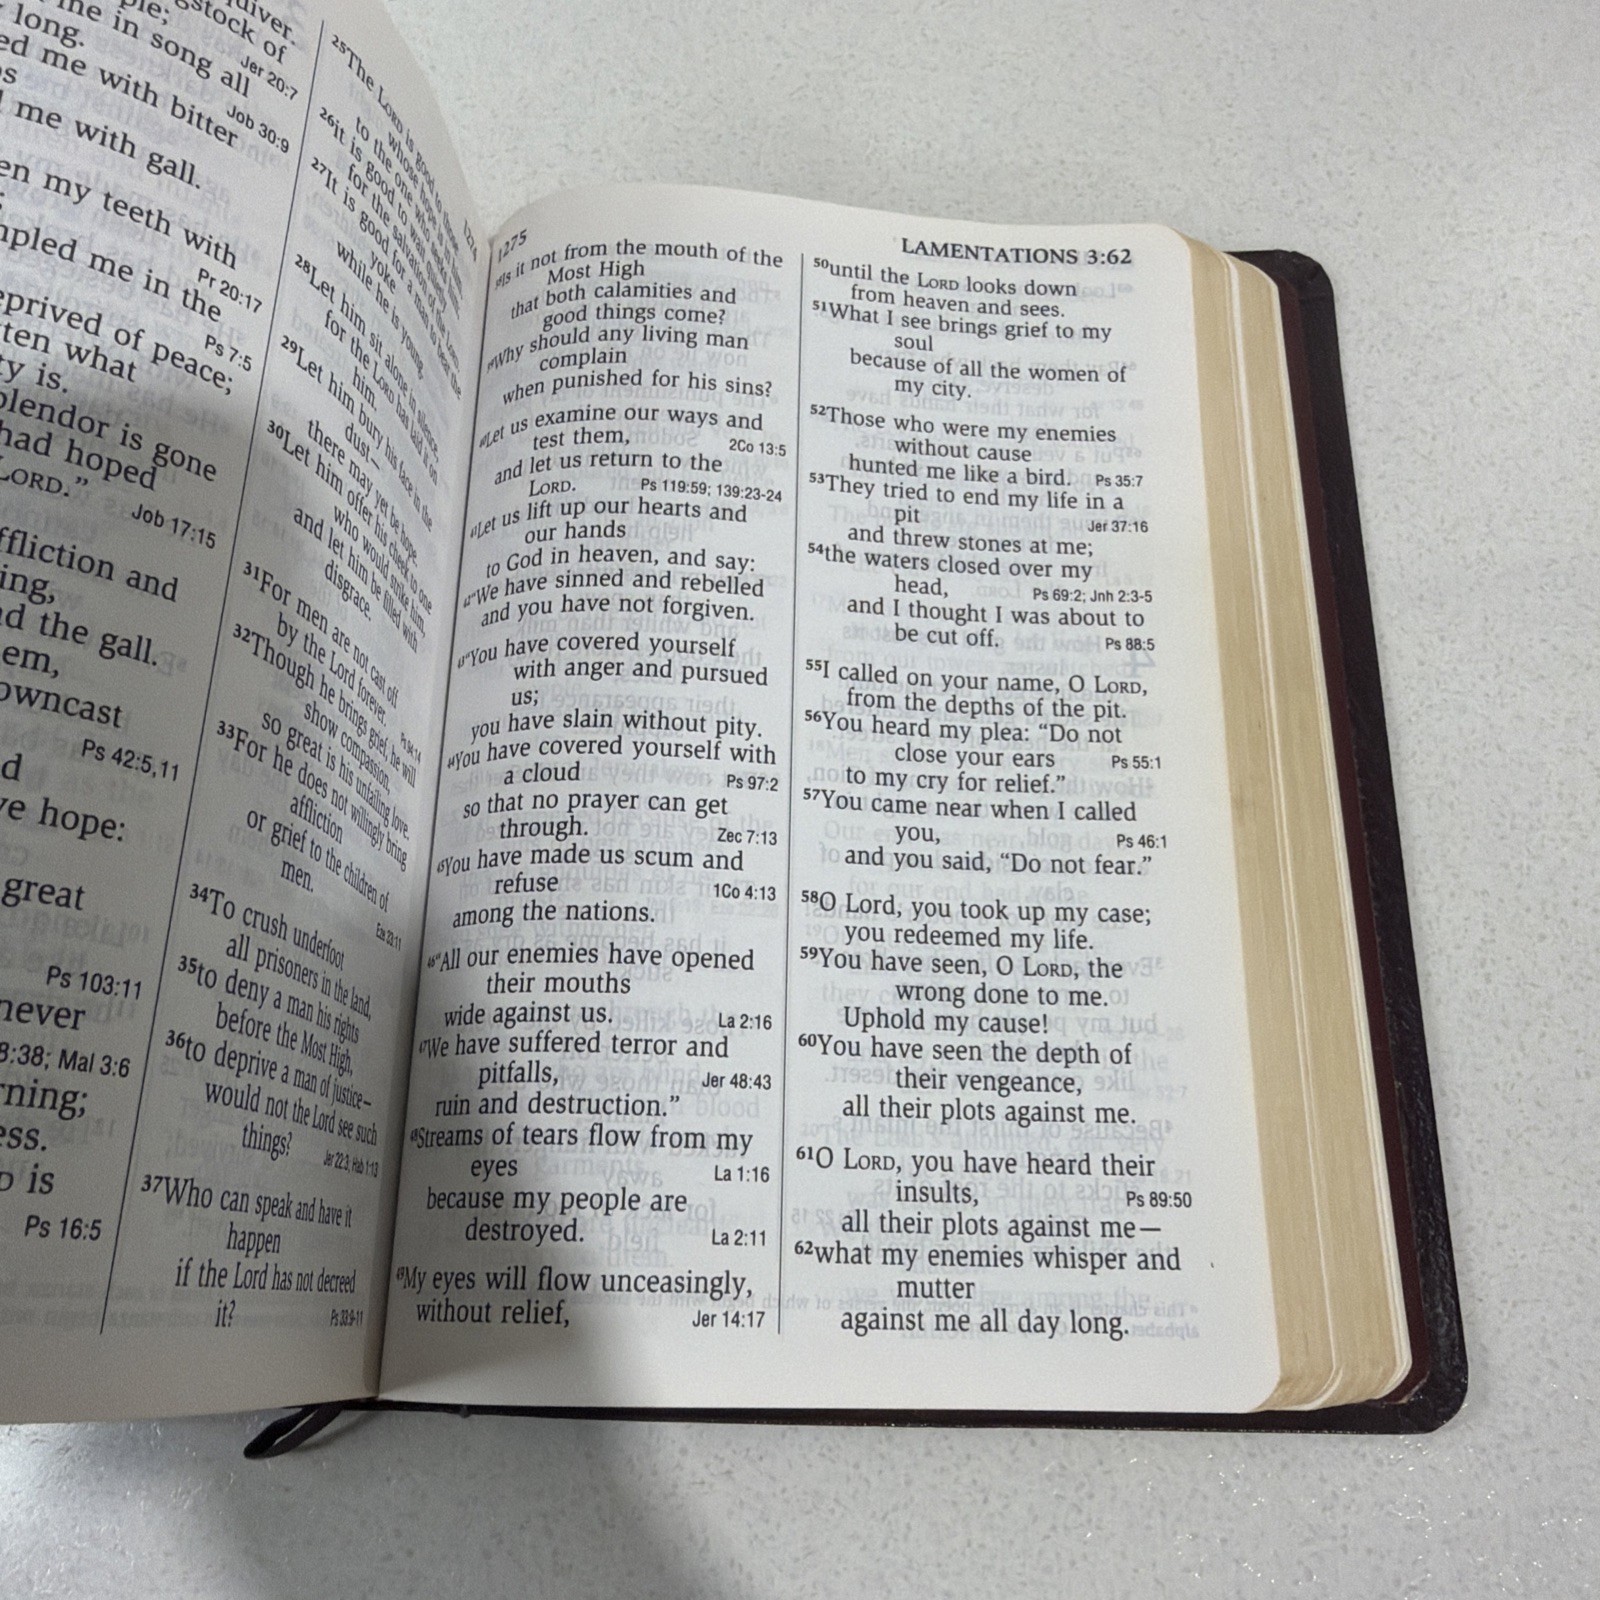 quiver.
gstock of
Jer 20:7
me in song all
long.
Job 30:9
ed me with bitter
me with gall.
en my teeth with
Pr 20:17
mpled me in the
Ps 7:5
eprived of peace;
tten what
ty is.
plendor is gone
had hoped
LORD.”
Job 17:15
ffliction and
ing,
nd the gall.
em,
owncast
Ps 42:5,11
d
ve hope:
great
Ps 103:11
never
8:38; Mal 3:6
rning;
ess.
D is
Ps 16:5
1274
25The LORD is good to those
whose hope is in him,
to the one who seeks him;
26it is good to wait quietly
for the salvation of the LORD.
27It is good for a man to bear the
yoke
while he is young.
28Let him sit alone in silence,
for the LORD has laid it on
him.
29Let him bury his face in the
dust—
there may yet be hope.
30Let him offer his cheek to one
who would strike him,
and let him be filled with
disgrace.
31For men are not cast off
by the Lord forever.
Ps 94:14
32Though he brings grief, he will
show compassion,
so great is his unfailing love.
33For he does not willingly bring
affliction
or grief to the children of
men.
Eze 33:11
34To crush underfoot
all prisoners in the land,
35to deny a man his rights
before the Most High,
36to deprive a man of justice—
would not the Lord see such
things? Jer 22:3; Hab 1:13
37Who can speak and have it
happen
if the Lord has not decreed
it? Ps 33:9-11
1275
LAMENTATIONS 3:62
38Is it not from the mouth of the
Most High
that both calamities and
good things come?
39Why should any living man
complain
when punished for his sins?
40Let us examine our ways and
test them, 2Co 13:5
and let us return to the
LORD. Ps 119:59; 139:23-24
41Let us lift up our hearts and
our hands
to God in heaven, and say:
42“We have sinned and rebelled
and you have not forgiven.
43“You have covered yourself
with anger and pursued
us;
you have slain without pity.
44You have covered yourself with
a cloud Ps 97:2
so that no prayer can get
through. Zec 7:13
45You have made us scum and
refuse 1Co 4:13
among the nations.
46“All our enemies have opened
their mouths
wide against us. La 2:16
47We have suffered terror and
pitfalls, Jer 48:43
ruin and destruction.”
48Streams of tears flow from my
eyes La 1:16
because my people are
destroyed. La 2:11
49My eyes will flow unceasingly,
without relief, Jer 14:17
50until the LORD looks down
from heaven and sees.
51What I see brings grief to my
soul
because of all the women of
my city.
52Those who were my enemies
without cause
hunted me like a bird. Ps 35:7
53They tried to end my life in a
pit Jer 37:16
and threw stones at me;
54the waters closed over my
head, Ps 69:2; Jnh 2:3-5
and I thought I was about to
be cut off. Ps 88:5
55I called on your name, O LORD,
from the depths of the pit.
56You heard my plea: “Do not
close your ears Ps 55:1
to my cry for relief.”
57You came near when I called
you, Ps 46:1
and you said, “Do not fear.”
58O Lord, you took up my case;
you redeemed my life.
59You have seen, O LORD, the
wrong done to me.
Uphold my cause!
60You have seen the depth of
their vengeance,
all their plots against me.
61O LORD, you have heard their
insults, Ps 89:50
all their plots against me—
62what my enemies whisper and
mutter
against me all day long.